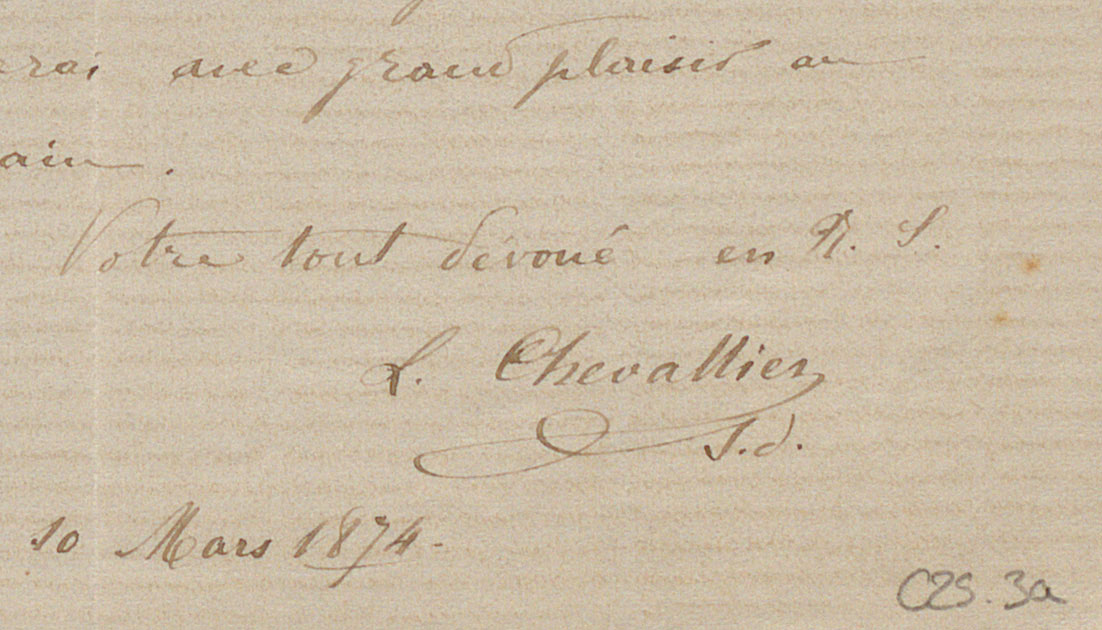 erai avec grand plaisir au
ain.
Votre tout dévoué en N. S.
L. Chevallier
S.d.
10 Mars 1874-
C25.3a